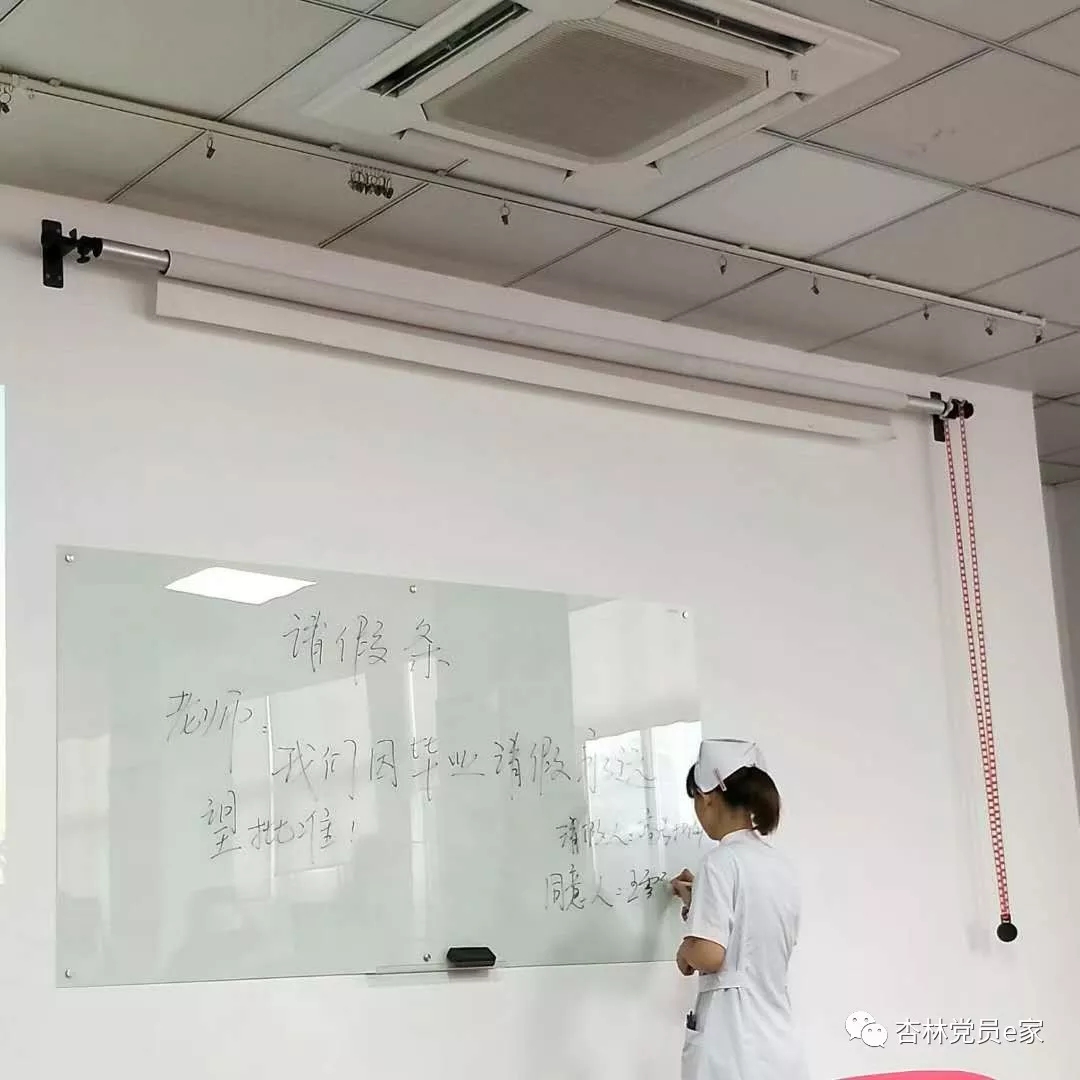 请假条
老师:
我们因毕业请假永远
望批准!
请假人:
同意人:王雪
杏林党员e家